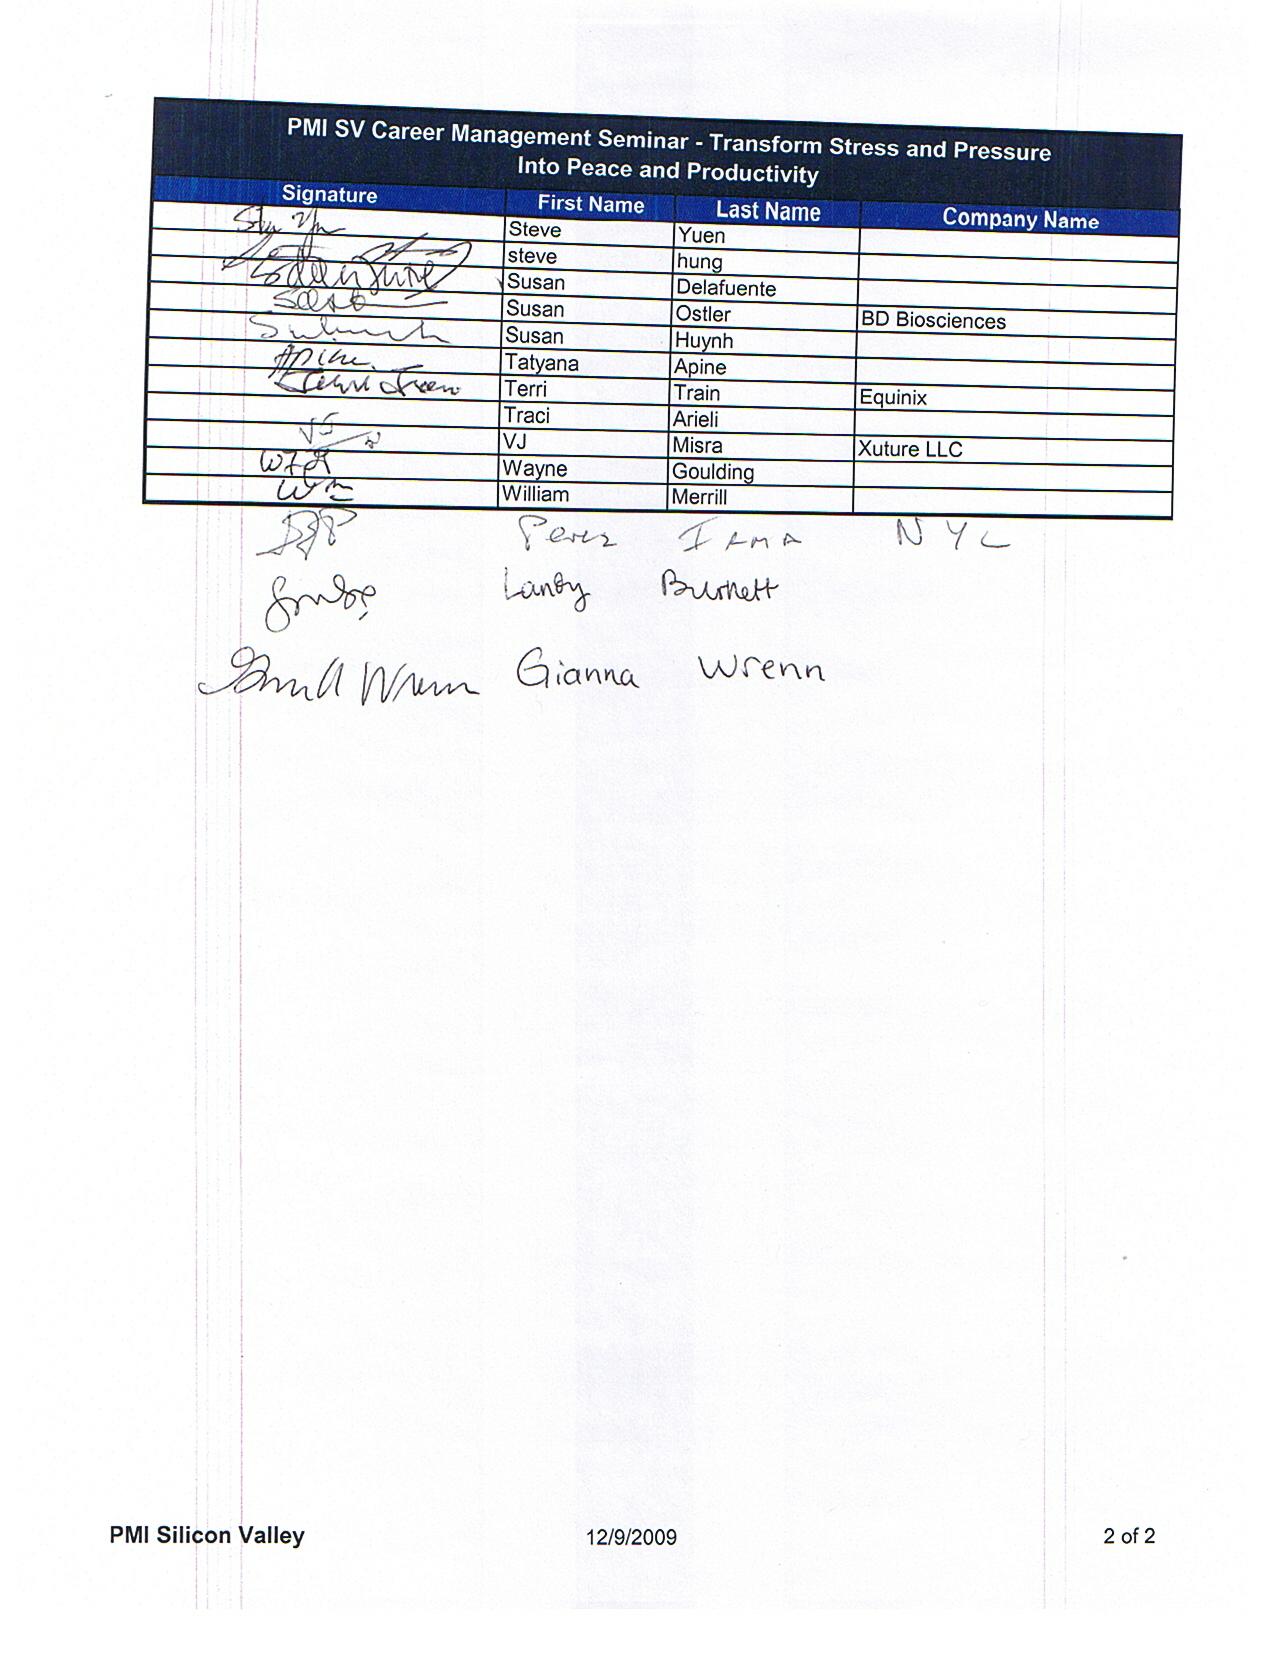 PMI SV Career Management Seminar - Transform Stress and Pressure
Into Peace and Productivity
Signature First Name Last Name Company Name
Steve Yuen
steve hung
Susan Delafuente
Susan Ostler BD Biosciences
Susan Huynh
Tatyana Apine
Terri Train Equinix
Traci Arieli
VJ VJ Misra Xuture LLC
Wayne Goulding
William Merrill
Perez IRMA NYL
Landy Burnett
Wrenn Gianna Wrenn
PMI Silicon Valley 12/9/2009 2 of 2